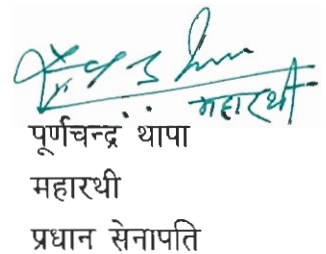 महारथी
पूर्णचन्द्र थापा
महारथी
प्रधान सेनापति